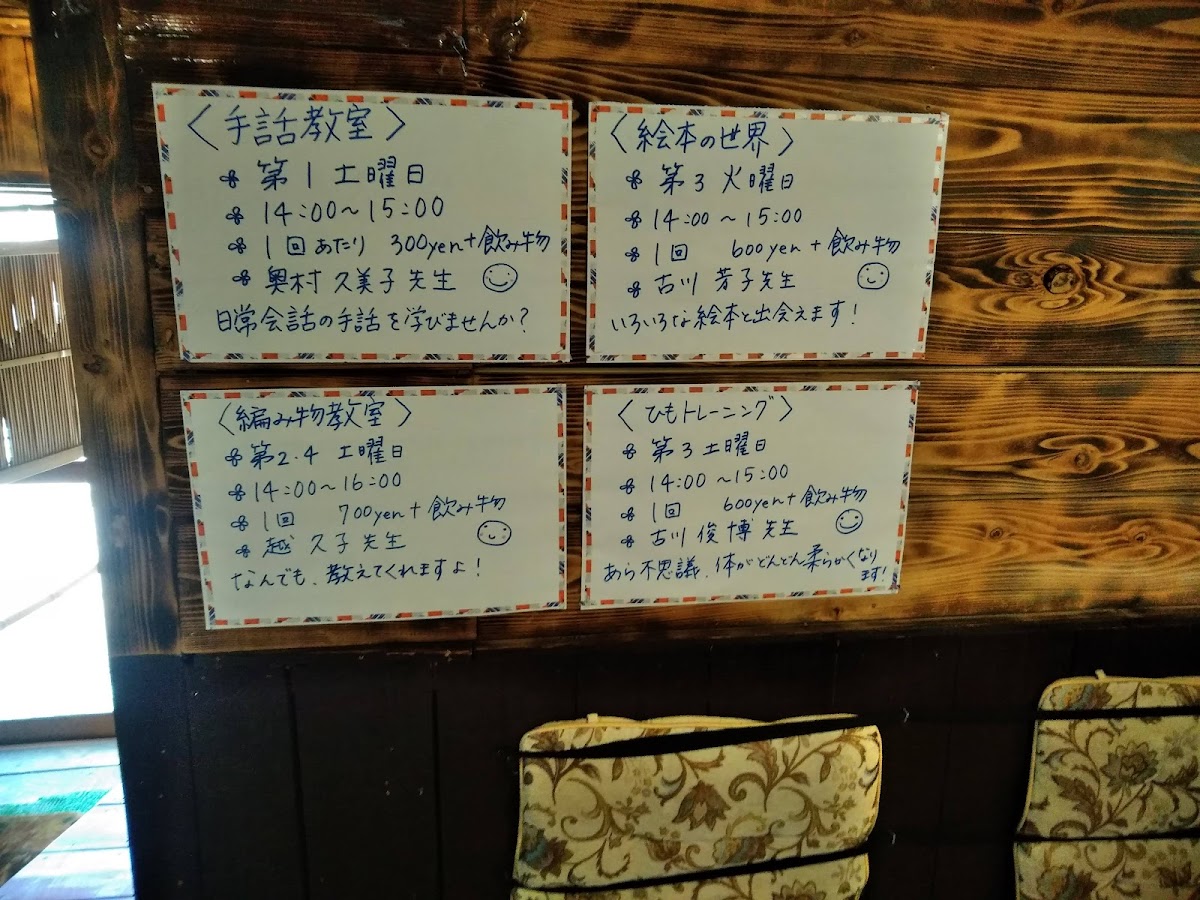 〈手話教室〉
第1土曜日
14:00～15:00
1回あたり 300yen+飲み物
奥村久美子先生
日常会話の手話を学びませんか？
〈絵本の世界〉
第3火曜日
14:00～15:00
1回 600yen+飲み物
古川芳子先生
いろいろな絵本と出会えます！
〈編み物教室〉
第2.4土曜日
14:00～16:00
1回 700yen+飲み物
越久子先生
なんでも、教えてくれますよ！
〈ひもトレーニング〉
第3土曜日
14:00～15:00
1回 600yen+飲み物
古川俊博先生
あら不思議、体がどんどん柔らかくなり
ます！